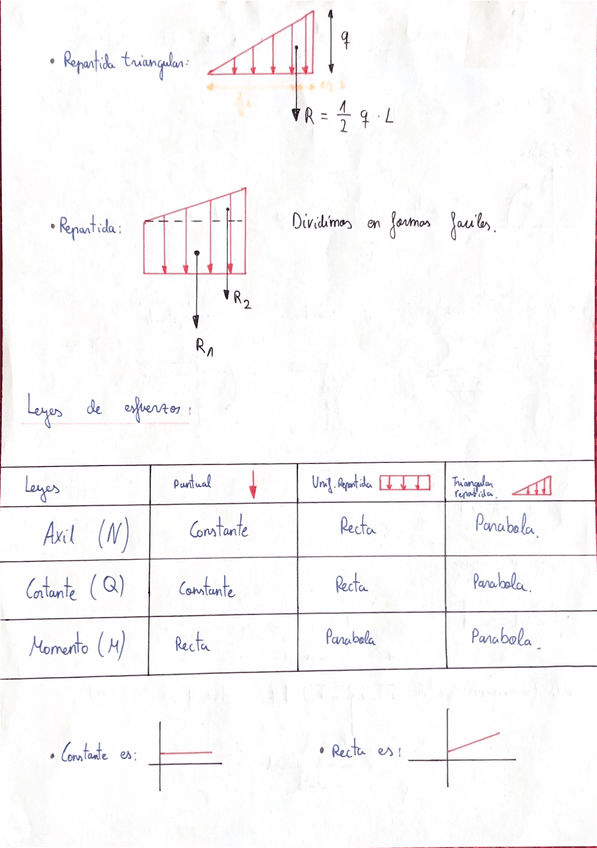 • Repartida triangular:
q
R = 1/2 q · L
• Repartida:
Dividimos en formas faciles.
R2
R1
Leyes de esfuerzos:
Leyes
Puntual
Unif. Repartida
Triangular
repartida.
Axil (N)
Constante
Recta
Parabola.
Cortante (Q)
Constante
Recta
Parabola.
Momento (M)
Recta
Parabola
Parabola.
• Constante es:
• Recta es: